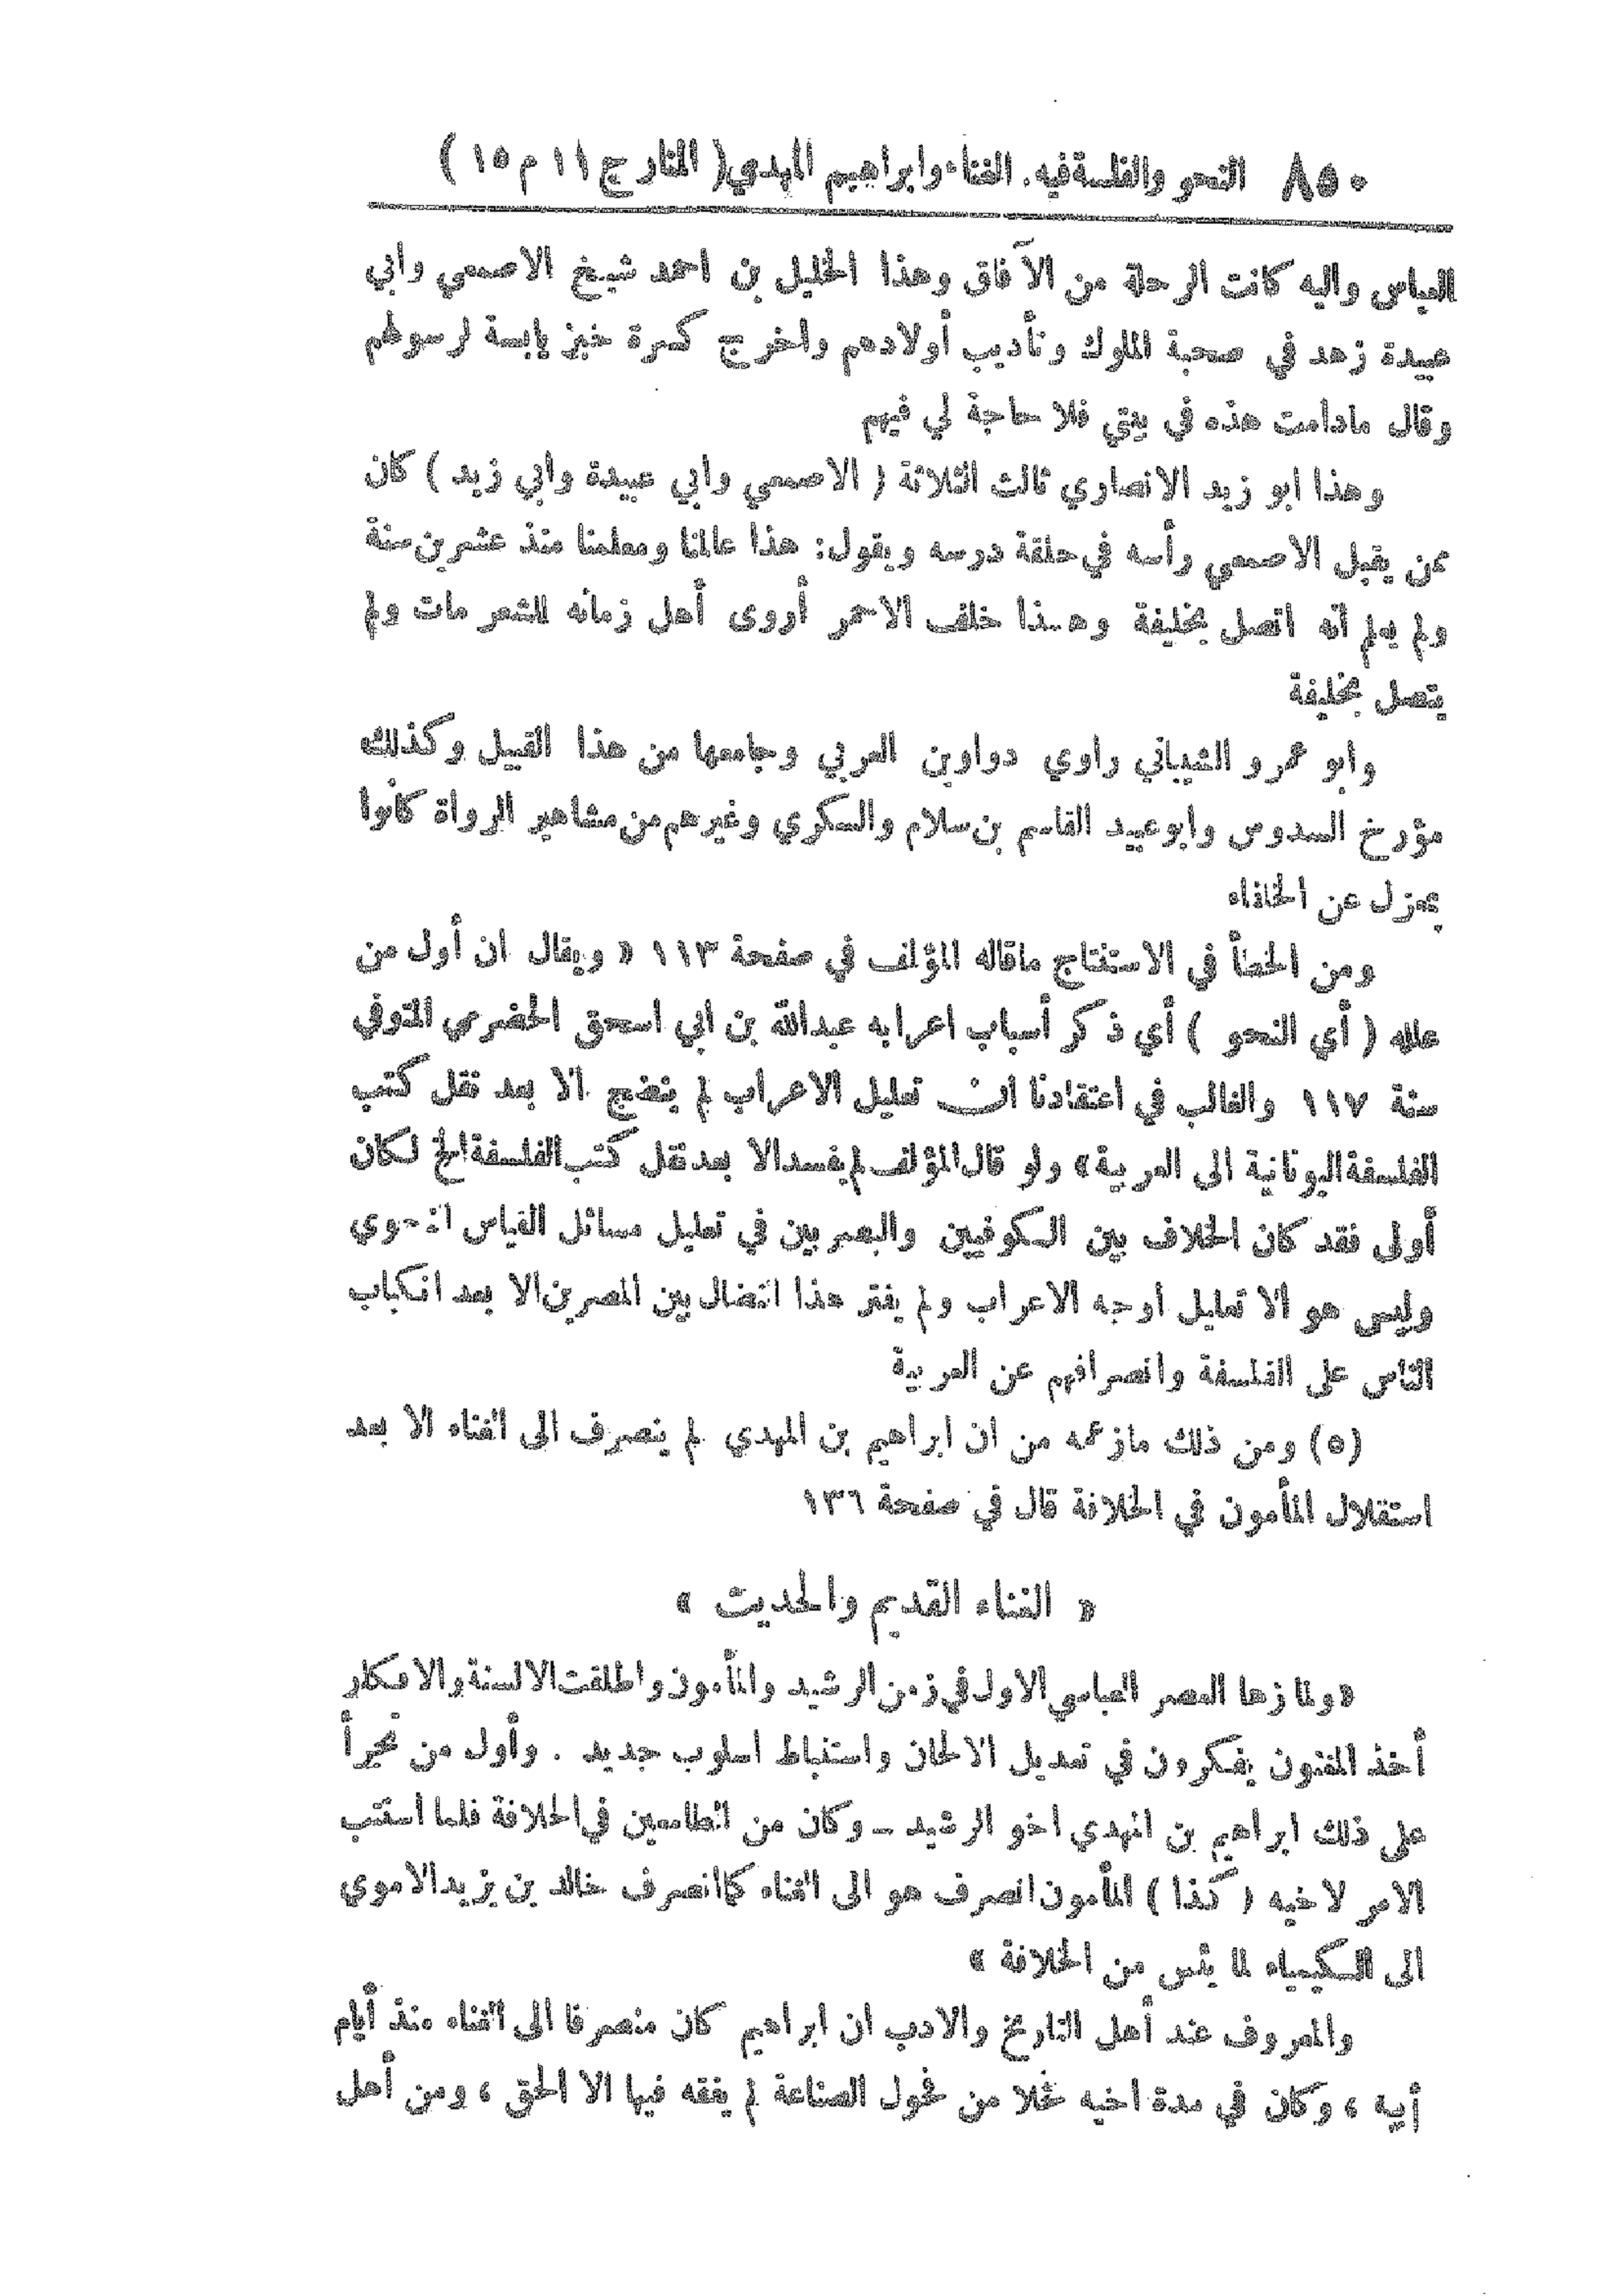 ٨٥٠ النحو والفلسفة فيه. الغناء وابراهيم المهدي ( المنار ج ١١ م ١٥ )
العباس واليه كانت الرحلة من الآفاق وهذا الخليل بن احمد شيخ الاصمعي وابي
عبيدة زهد في صحبة الملوك وتأديب أولادهم واخرج كسرة خبز يابسة لرسولهم
وقال مادامت هذه في بيتي فلا حاجة لي فيهم
وهذا ابو زيد الانصاري ثالث الثلاثة ( الاصمعي وابي عبيدة وابي زيد ) كان
ممن يقبل الاصمعي رأسه في حلقة درسه ويقول: هذا عالمنا ومعلمنا منذ عشرين سنة
ولم يعلم أنه اتصل بخليفة وهذا خلف الاحمر أروى أهل زمانه للشعر مات ولم
يتصل بخليفة
وابو عمرو الشيباني راوي دواوين العربي وجامعها من هذا القبيل وكذلك
مؤرخ السدوس وابوعبيد القاسم بن سلام والسكري وغيرهم من مشاهير الرواة كانوا
بمعزل عن الخلفاء
ومن الخطأ في الاستنتاج ماقاله المؤلف في صفحة ١١٣ « ويقال ان أول من
علله ( أي النحو ) أي ذكر أسباب اعرابه عبدالله بن ابي اسحق الحضرمي المتوفي
سنة ١١٧ والغالب في اعتقادنا ان تعليل الاعراب لم ينضج الا بعد نقل كتب
الفلسفة اليونانية الى العربية» ولو قال المؤلف لم يفسد الا بعد نقل كتب الفلسفة الخ لكان
أولى فقد كان الخلاف بين الكوفيين والبصريين في تعليل مسائل القياس النحوي
وليس هو الا تعليل اوجه الاعراب ولم يفتر هذا النضال بين المصرين الا بعد انكباب
الناس على الفلسفة وانصرافهم عن العربية
(٥) ومن ذلك مازعمه من ان ابراهيم بن المهدي لم ينصرف الى الغناء الا بعد
استقلال المأمون في الخلافة قال في صفحة ١٣٦
« الغناء القديم والحديث »
«ولما زها العصر العباسي الاول في زمن الرشيد والمأمون واطلقت الالسنة والافكار
أخذ المغنون يفكرون في تعديل الالحان واستنباط اسلوب جديد . وأول من تجرأ
على ذلك ابراهيم بن المهدي اخو الرشيد ــ وكان من الطامعين في الخلافة فلما استتب
الامر لاخيه ( كذا ) المأمون انصرف هو الى الغناء كما انصرف خالد بن يزيد الاموي
الى الكيمياء لما يئس من الخلافة »
والمعروف عند أهل التاريخ والادب ان ابراهيم كان منصرفا الى الغناء منذ أيام
أبيه ، وكان في مدة اخيه فحلا من فحول الصناعة لم يفقه فيها الا الحق ، ومن أهل